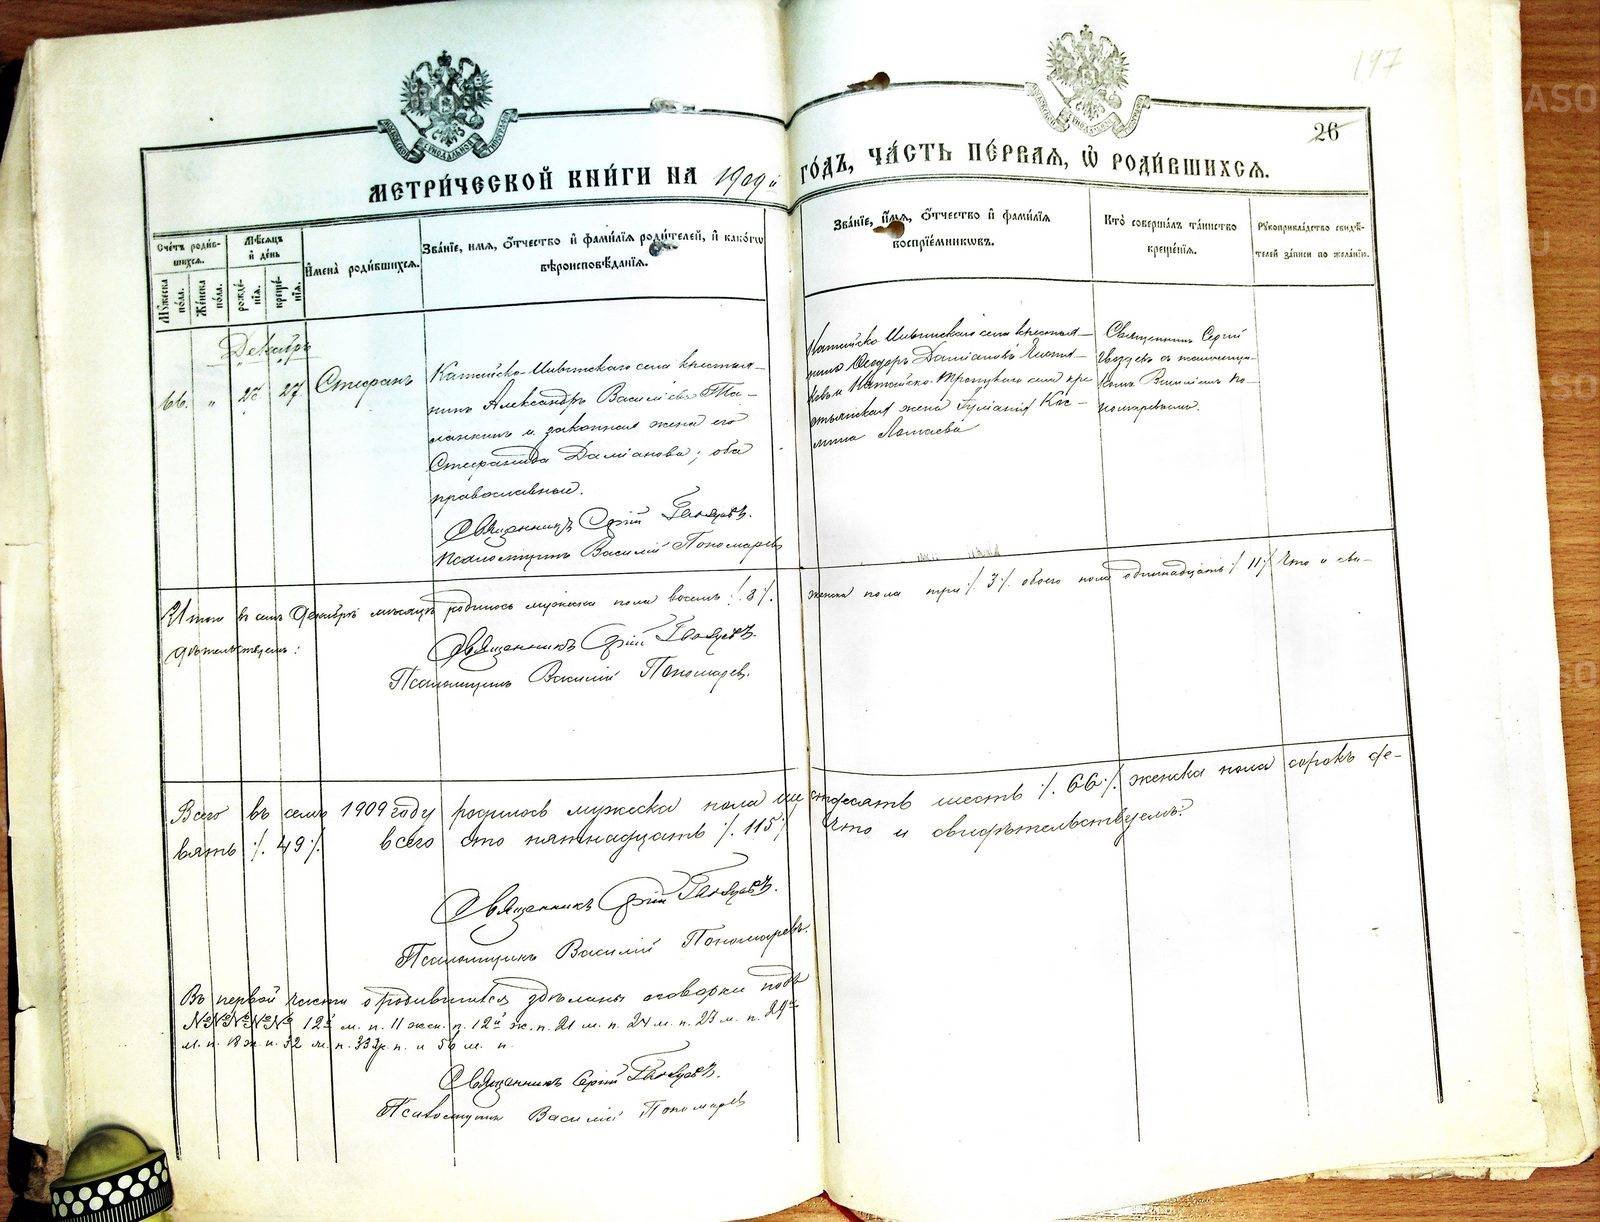 197
26
МЕТРИ́ЧЕСКОЙ КНИ́ГИ НА 1909й ГО́ДЪ, ЧА́СТЬ ПЕ́РВАѦ, Ѡ҆ РОДИ́ВШИХСѦ.
Сче́тъ роди́вшихсѧ.
Мѣ́сѧцъ и҆ де́нь
Му́жеска по́ла.
Же́нска по́ла.
рожде́нїѧ.
креще́нїѧ.
И҆мена̀ роди́вшихсѧ.
Зва́нїе, имѧ, ѻ҆́тчество и҆ фами́лїѧ роди́телей, и҆ како́гѡ
вѣроисповѣ́данїѧ.
Зва́нїе, и҆́мѧ, ѻ҆́тчество и҆ фами́лїѧ
воспрїе́мниковъ.
Кто̀ соверша́лъ та́инство
креще́нїѧ.
Рꙋкоприкла́дство свидѣ́-
телей за́писи по жела́нїю.
Декабрь
66. " 27 Стефанъ
крестья-
нинъ Александръ Василіевъ
и законная жена его
Даміанова; оба
православные.
Священникъ Сергій
Псаломщикъ Василій Пономаревъ
села крестья-
нинъ Ѳеодоръ Даміановъ
села кре-
стьянская жена
Священникъ Сергій
съ псаломщи-
комъ Василіемъ По-
номаревымъ.
Итого въ семъ Декабрѣ мѣсяцѣ родилось мужеска пола восемь ·/. 8 ·/. женска пола три ·/. 3 ·/. обоего пола одиннадцать ·/. 11 ·/. Что и сви-
дѣтельствуемъ:
Священникъ Сергій
Псаломщикъ Василій Пономаревъ.
Всего въ семъ 1909 году родилось мужеска пола шестьдесятъ шесть ·/. 66 ·/. женска пола сорокъ де-
вять ·/. 49 ·/. всего сто пятнадцать ·/. 115 ·/. Что и свидѣтельствуемъ:
Священникъ Сергій
Псаломщикъ Василій Пономаревъ.
Въ первой части о родившихся сдѣланы оговорки подъ
№№№№№ 12й м. п. 11 жен. п. 12й ж. п. 21 м. п. 24 м. п. 27 м. п. 29й
м. п. 18 ж. п. 32 м. п. 33 п. и 56 м. п.
Священникъ Сергій
Псаломщикъ Василій Пономаревъ